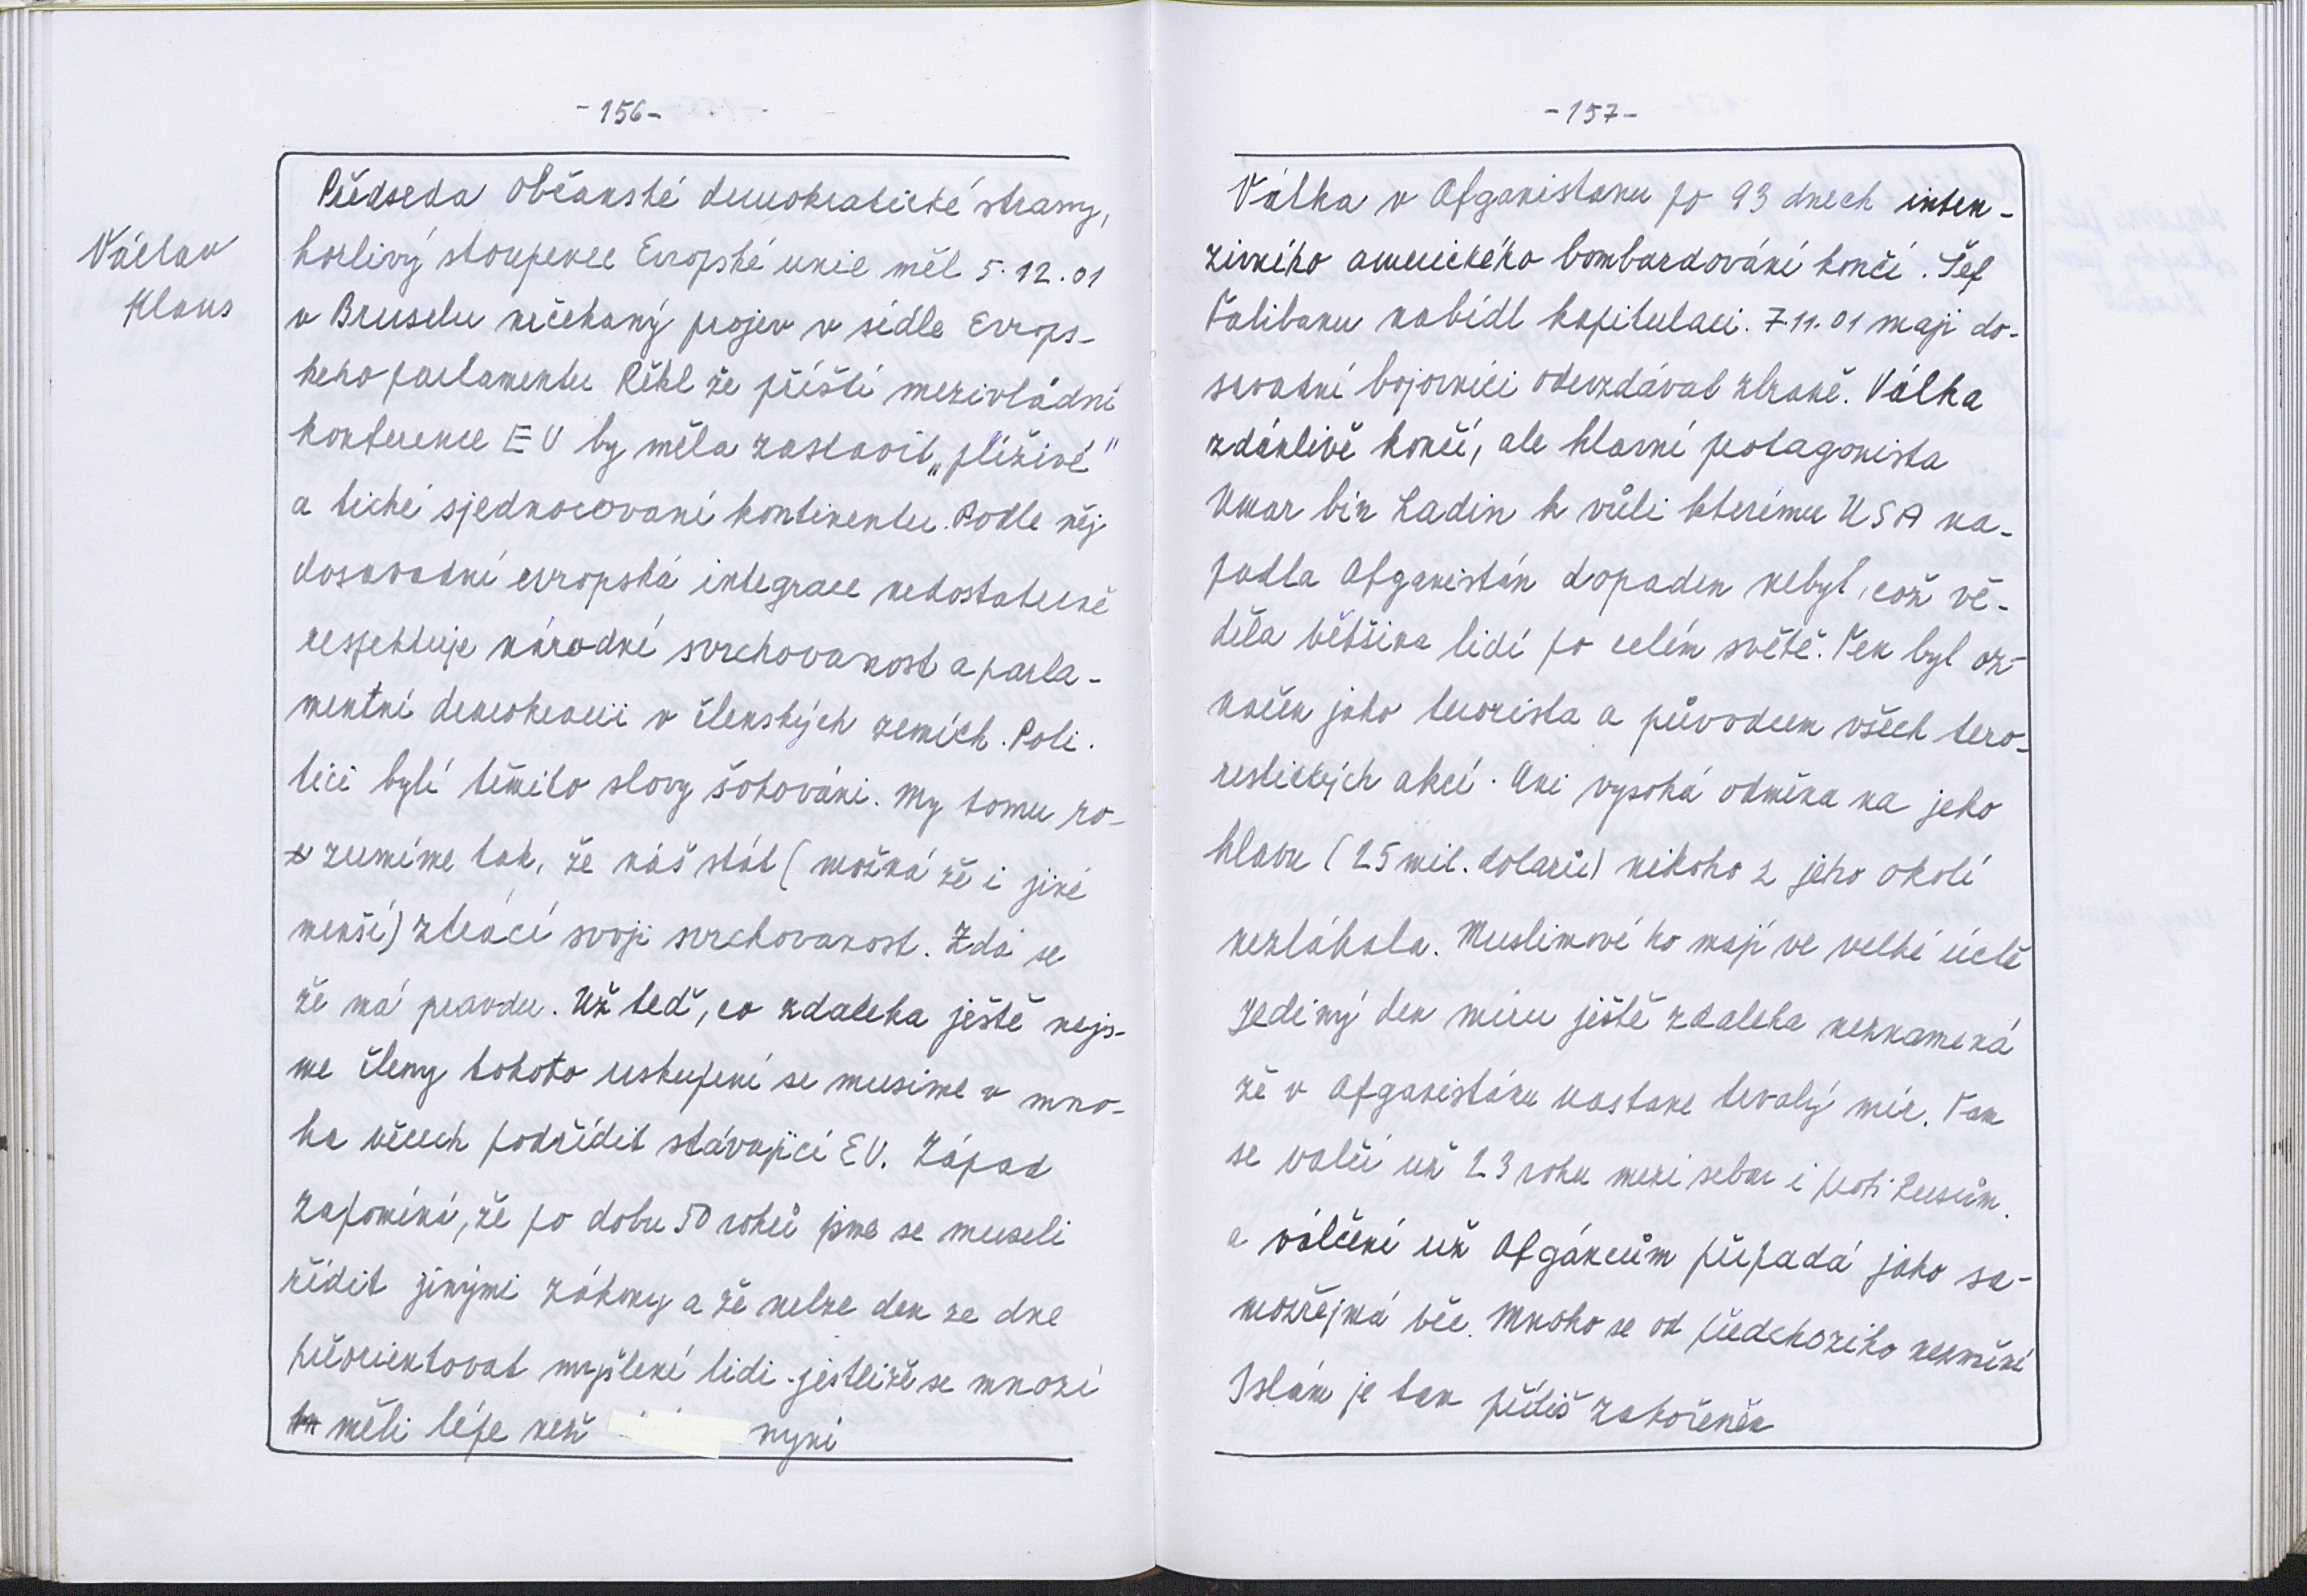 -156-
Václav
Klaus
Předseda Občanské demokratické strany,
horlivý stoupenec Evropské unie měl 5.12.01
v Bruselu nečekaný projev v sídle Evrops-
keho parlamentu Řěkl že příští mezivládní
konference EU by měla zastavit „plíživé"
a tiché sjednocovaní kontinentu. Podle něj
dosavadní evropská integrace nedostatečně
respektuje národní svrchovanost a parla-
mentní demokracii v členských zemích. Poli.
tici bylí těmito slovy šokováni. My tomu ro-
zumíme tak, že náš stát (možná že i jiné
menší) ztrácí svoji svrchovanost. Zdá se
že má pravdu. Už teď, co zdaleka ještě nejs-
me členy tohoto uskupení se musíme v mno-
ha věcech podřídit stávající EU. Západ
zapomíná, že po dobu 50 roků jsme se museli
řídit jinými zákony a že nelze den ze dne
přeorientovat myšlení lidi. jestliže se mnozí
měli lépe než nyní
-157-
Válka v Afganistanu po 93 dnech inten-
zivního amerického bombardování končí. Šéf
Talibanu nabídl kapitulaci. 7.11.01 maji do-
savadní bojovníci odevzdávat zbraně. Válka
zdánlivě končí, ale hlavní protagonista
Umar bin Ladin k vůli kterému USA na-
padla Afganistán dopaden nebyl, což vě-
děla většina lidí po celém světě. Ten byl oz-
načen jako terorista a původcem všech tero-
ristických akcí. Ani vysoká odměna na jeho
hlavu (25 mil. dolarů) nikoho z jeho okolí
nezlákala. Muslimové ho mají ve velké úctě
Jediný den míru ještě zdaleka neznamená
že v Afganistánu nastane trvalý mír. Tam
se válčí už 23 roku mezi sebou i proti Rusům.
a válčení už Afgáncům připadá jako sa-
mozřejmá věc. Mnoho se od předchoziho nezmění
Islám je tam příliš zakořeněn